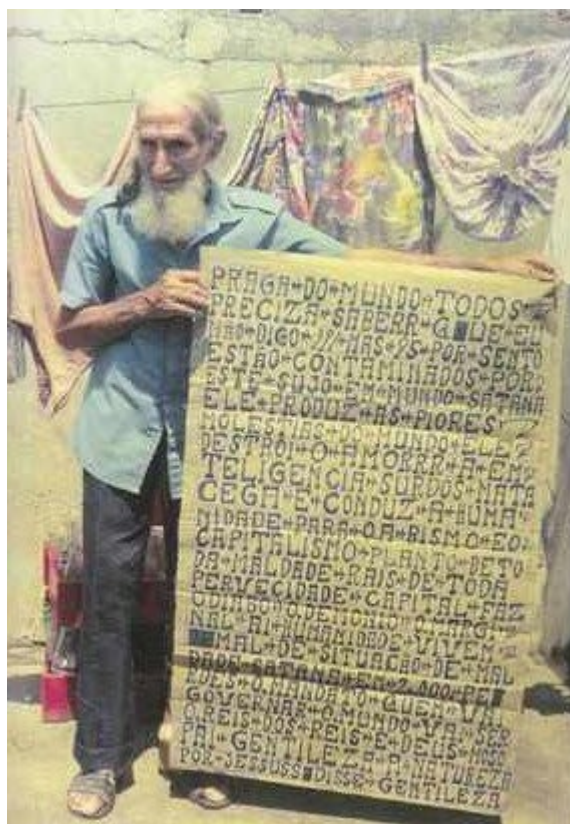 PRAGA DO MUNDO TODOS
PRECIZA SABERR
NAO DIGO MAS 75 POR SENTO
ESTAO CONTAMINADOS POR
ESTE SUJO EM MUNDO SATANA
ELE PRODUZ AS PIORES
MOLESTIAS DO MUNDO ELE
DESTROI O AMORRR A EN
TELIGENCIA SURDOS MATA
CEGA E CONDUZ A HUMA
NIDADE PARA O A RISMO E O
CAPITALISMO DE TO
DA MALDADE RAIS DE TODA
PERVECIDADE CAPITAL FAZ
O DIABO O DEMONIO O MARGI
NAL AI HUMANIDADE VIVEM
MAL DE SITUACAO DE MAL
SATANA EM 2.000
GOVERNAR O MUNDO VAI SER
O REIS DOS REIS E DEUS
PAI GENTILEZA A NATUREZA
POR JESSUSS DISSE GENTILEZA